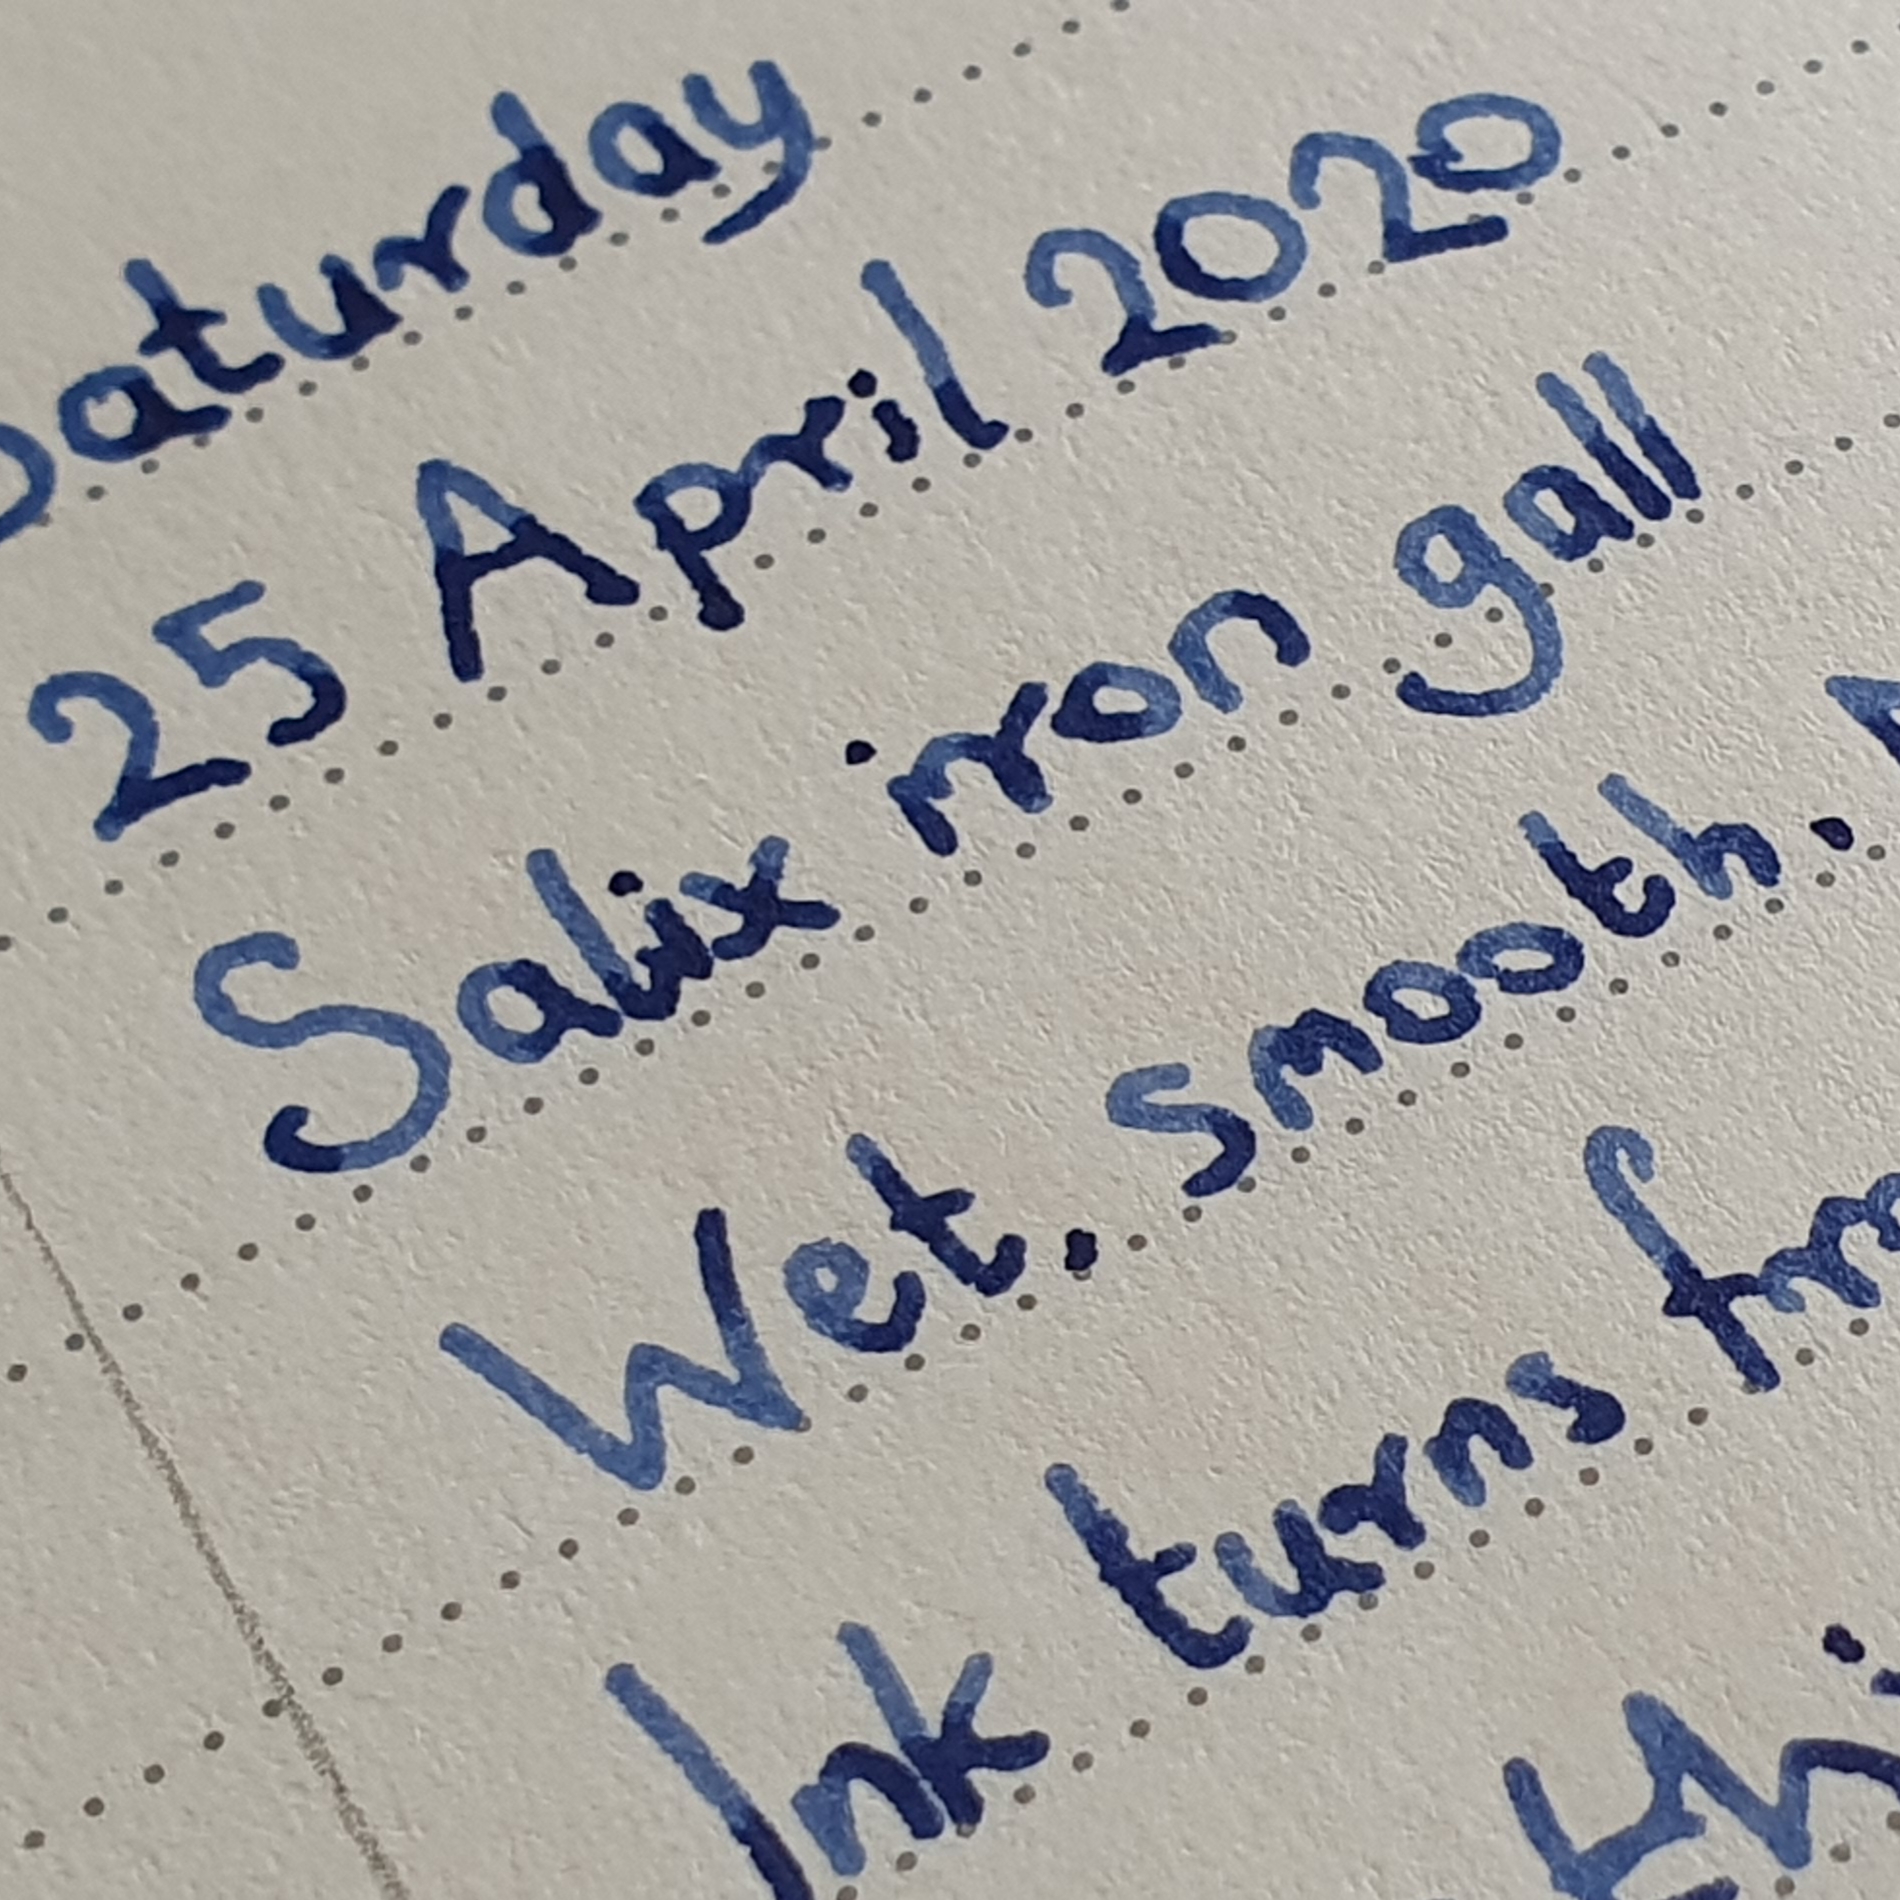 Saturday
25 April 2020
Salix iron gall
Wet. smooth.
Ink turns